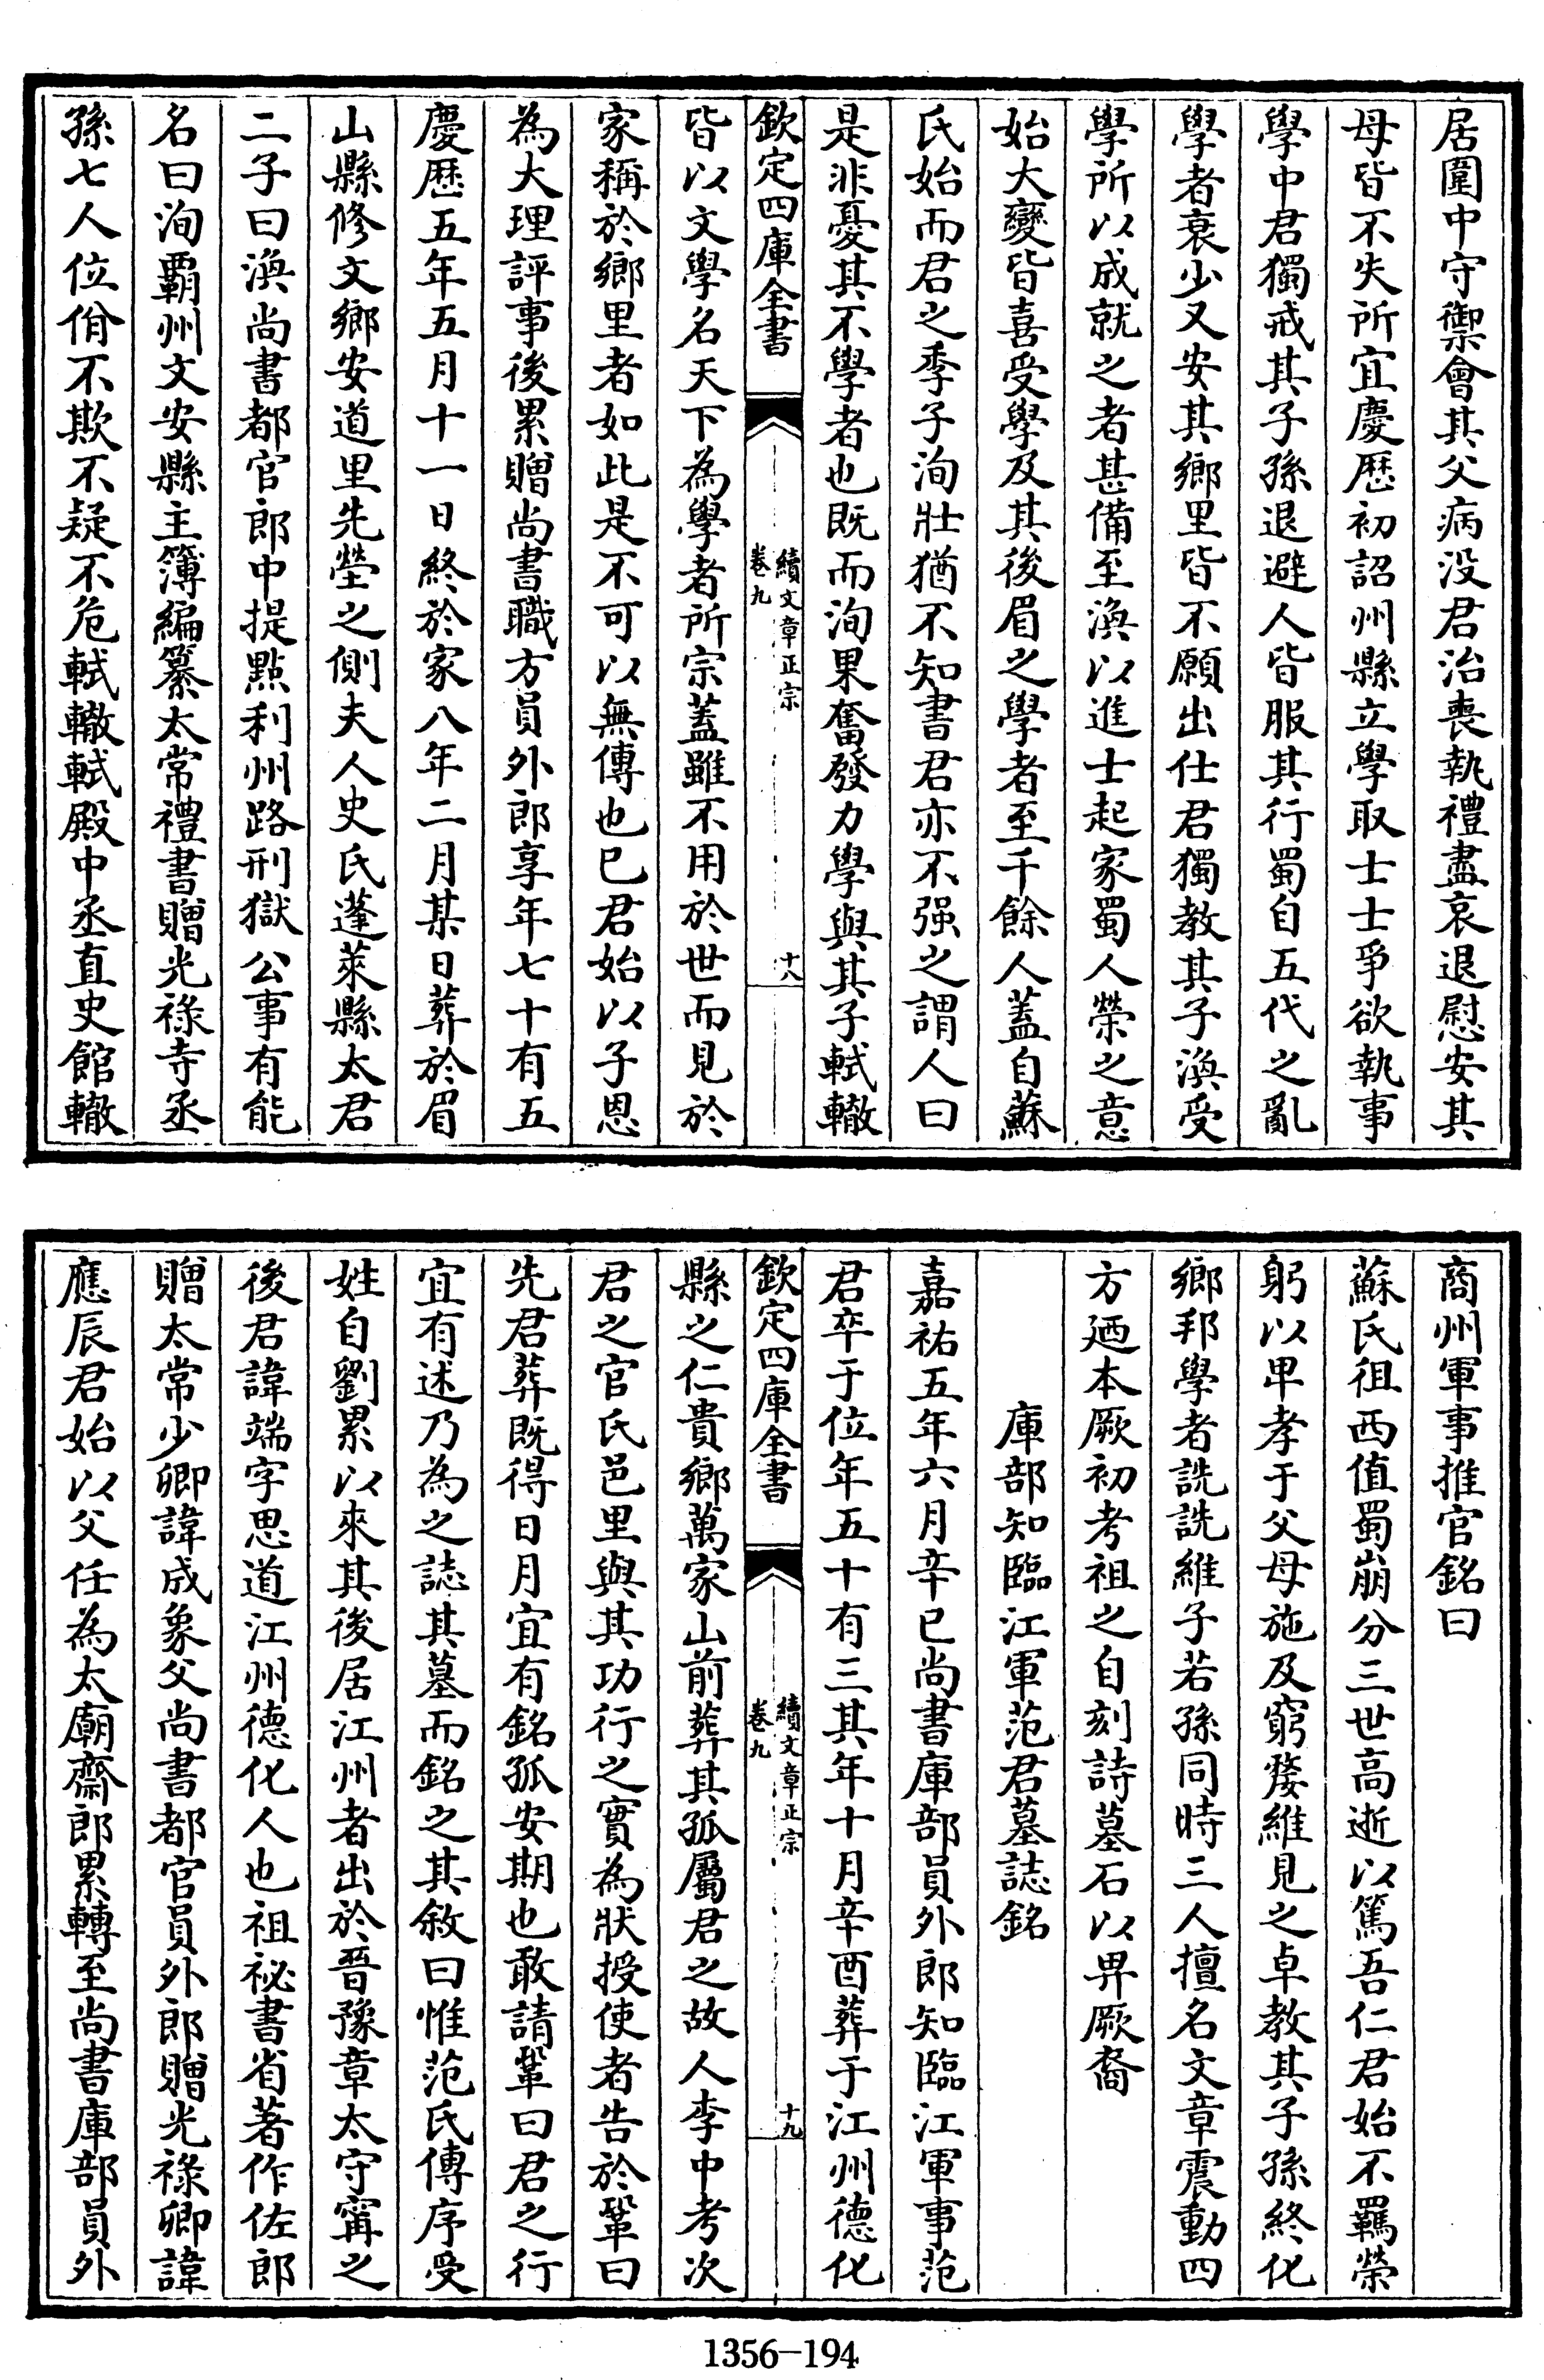 居圍中守禦會其父病没君治喪執禮盡哀退慰安其
母皆不失所宜慶歷初詔州縣立學取士士爭欲執事
學中君獨戒其子孫退避人皆服其行蜀自五代之亂
學者衰少又安其鄉里皆不願出仕君獨教其子渙受
學所以成就之者甚備至渙以進士起家蜀人榮之意
始大變皆喜受學及其後眉之學者至千餘人蓋自蘇
氏始而君之季子洵壯猶不知書君亦不强之謂人曰
是非憂其不學者也既而洵果奮發力學與其子軾轍
欽定四庫全書
續文章正宗
卷九
十八
皆以文學名天下為學者所宗蓋雖不用於世而見於
家稱於鄉里者如此是不可以無傳也已君始以子恩
為大理評事後累贈尚書職方員外郎享年七十有五
慶歷五年五月十一日終於家八年二月某日葬於眉
山縣修文鄉安道里先塋之側夫人史氏蓬萊縣太君
二子曰渙尚書都官郎中提點利州路刑獄公事有能
名曰洵霸州文安縣主簿編纂太常禮書贈光祿寺丞
孫七人位佾不欺不疑不危軾轍軾殿中丞直史館轍
商州軍事推官銘曰
蘇氏徂西值蜀崩分三世高逝以篤吾仁君始不羈榮
躬以卑孝于父母施及窮嫠維見之卓教其子孫終化
鄉邦學者詵詵維子若孫同時三人擅名文章震動四
方廼本厥初考祖之自刻詩墓石以畀厥裔
庫部知臨江軍范君墓誌銘
嘉祐五年六月辛已尚書庫部員外郎知臨江軍事范
君卒于位年五十有三其年十月辛酉葬于江州德化
欽定四庫全書
續文章正宗
卷九
十九
縣之仁貴鄉萬家山前葬其孤屬君之故人李中考次
君之官氏邑里與其功行之實為狀授使者告於鞏曰
先君葬既得日月宜有銘孤安期也敢請鞏曰君之行
宜有述乃為之誌其墓而銘之其敘曰惟范氏傳序受
姓自劉累以來其後居江州者出於晉豫章太守甯之
後君諱端字思道江州德化人也祖祕書省著作佐郎
贈太常少卿諱成象父尚書都官員外郎贈光祿卿諱
應辰君始以父任為太廟齋郎累轉至尚書庫部員外
1356-194